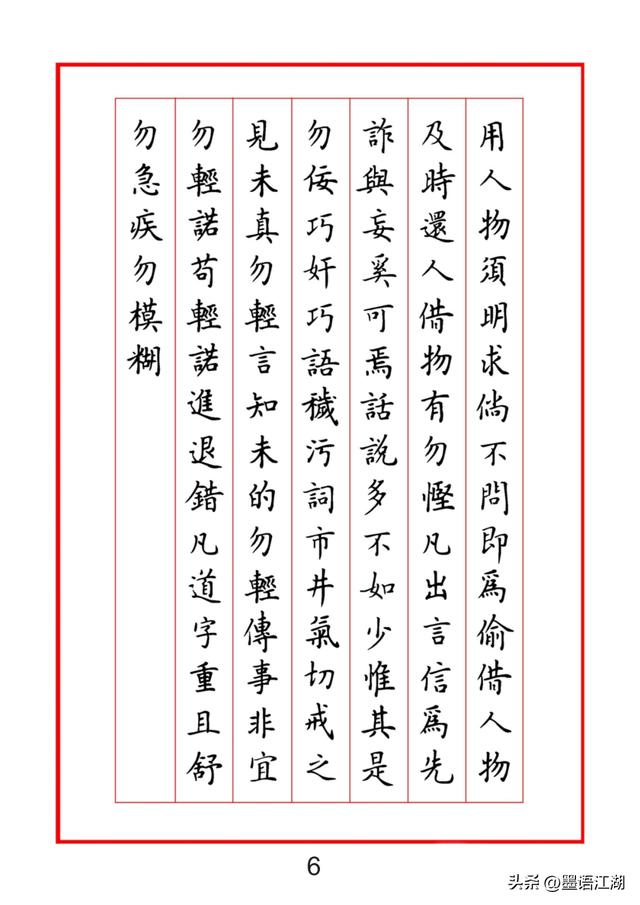 用人物須明求倘不問即爲偷借人物
及時還人借物有勿慳凡出言信爲先
詐與妄奚可焉話說多不如少惟其是
勿佞巧奸巧語穢污詞市井氣切戒之
見未真勿輕言知未的勿輕傳事非宜
勿輕諾苟輕諾進退錯凡道字重且舒
勿急疾勿模糊
6
头条 @墨语江湖